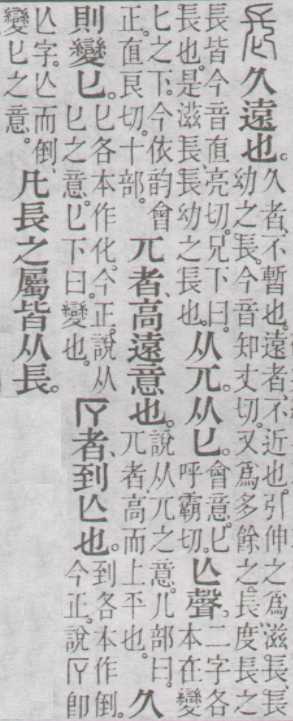 久遠也。久者、不暫也。遠者、不近也。引伸之爲滋長長幼之長。今音知丈切。又爲多餘之長、度長之
長皆今音直亮切。兄下曰。長也。是滋長長幼之長也。从兀从𠤎。會意。𠤎呼霸切。亾聲。二字各本在變
𠤎之下。今依韵會正。直良切。十部。兀者、高遠意也。說从兀之意。儿部曰。兀者、高而上平也。久
則變𠤎。𠤎各本作化。今正。說从𠤎之意。𠤎下曰。變也。者、到亾也。到各本作倒。今正。說卽
亾字。亾而倒、變𠤎之意。凡長之屬皆从長。